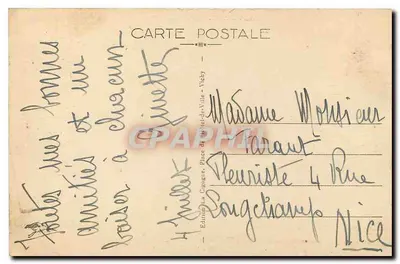 CARTE POSTALE
Toutes mes bonnes
amitiés et un
baiser à chacun
Ginette
4 Juillet
Editions La Cigogne, Place de l'Hôtel-de-Ville - Vichy
Madame Monsieur
Tarant
Fleuriste 4 Rue
Longchamp
NICE
CPAPHIL